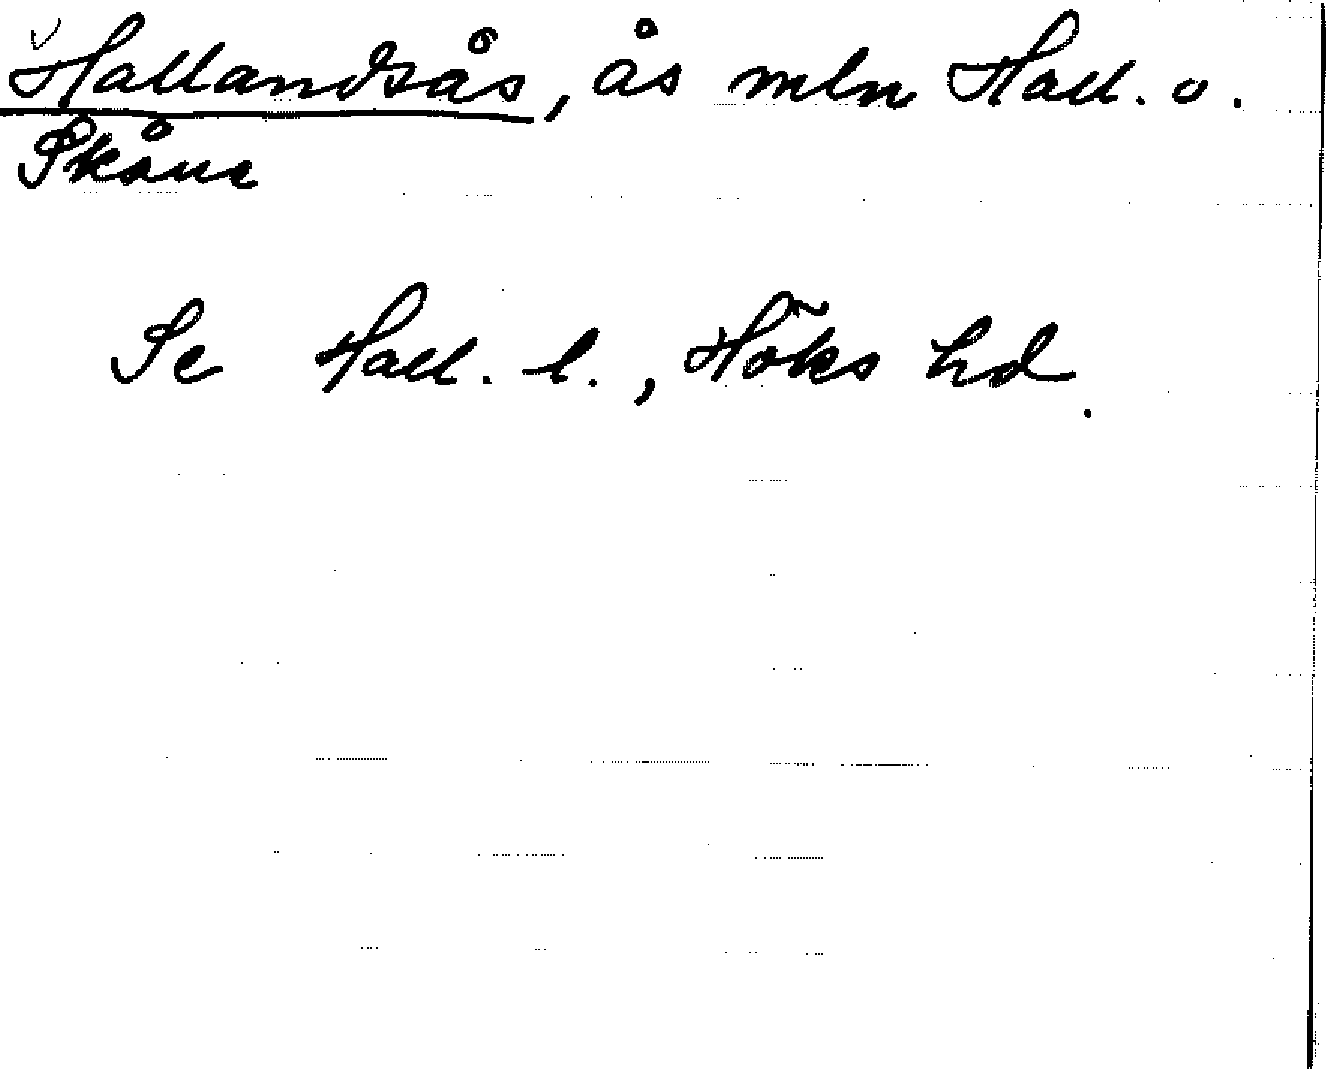 Hallandsås, ås mln Hall. o.
Skåne
Se Hall. l., Höks hd.